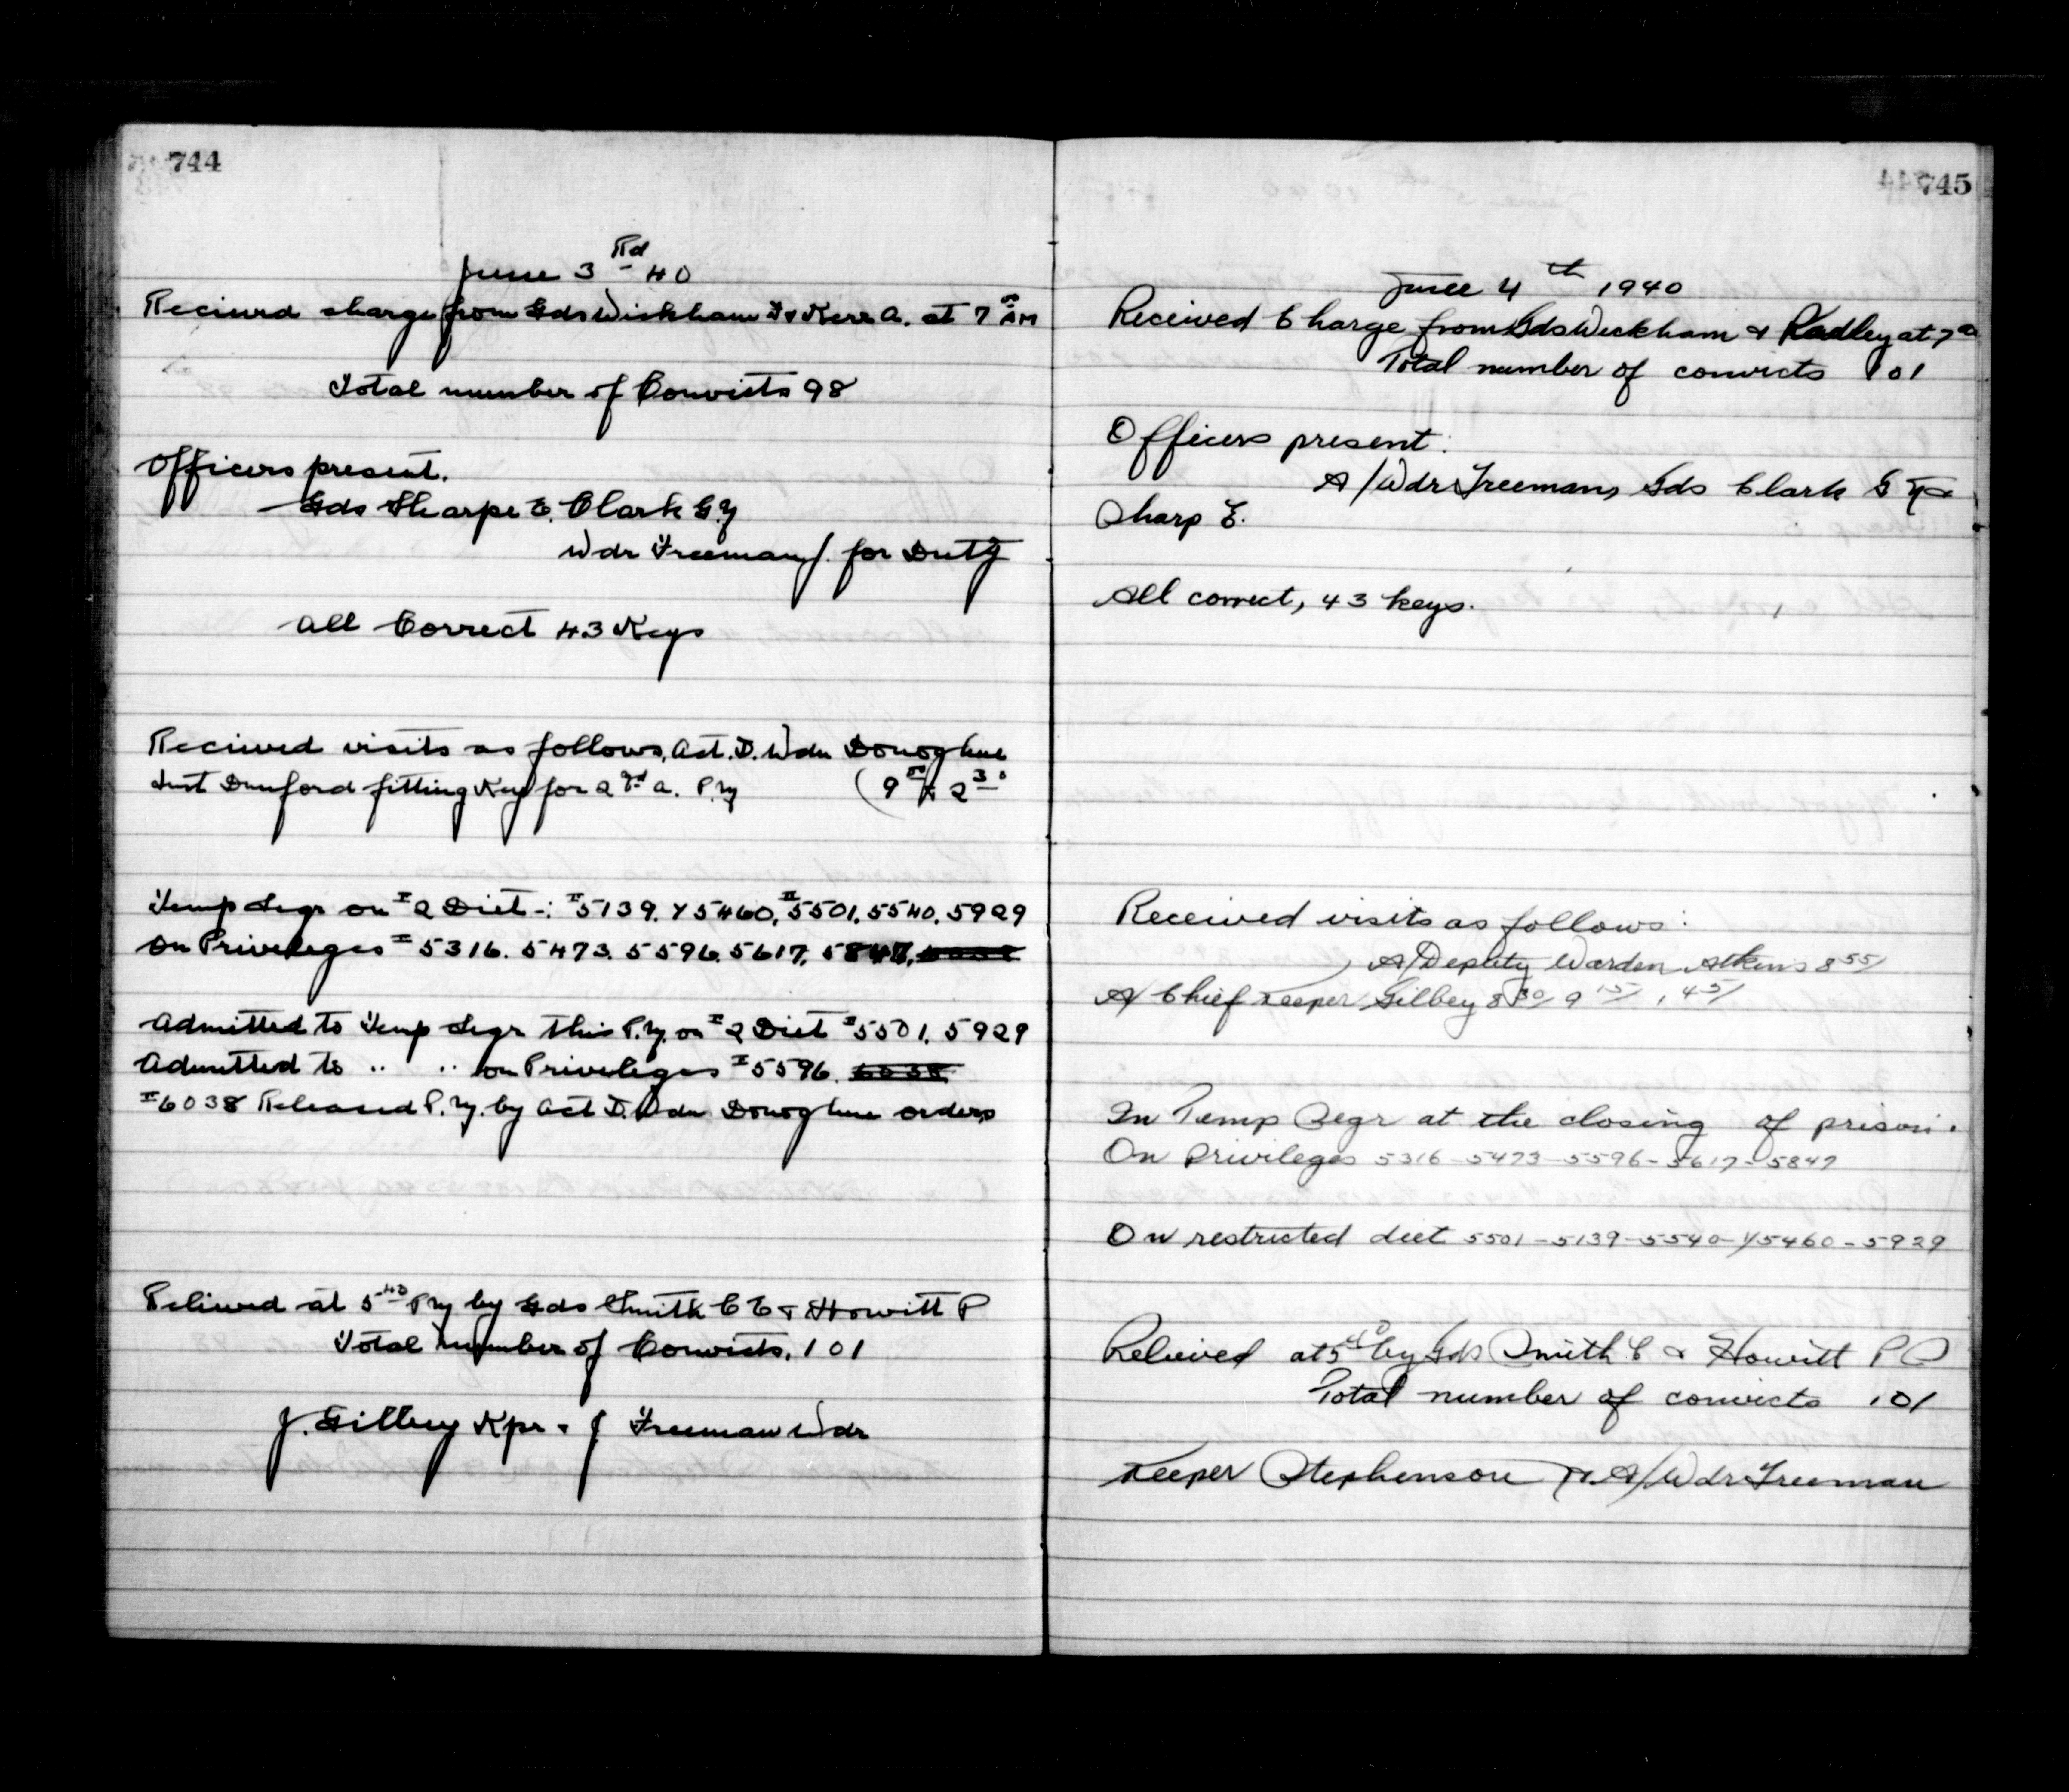 744
June 3 Rd 40
Recieved charge from Gds Wickham F & Kerr A. at 7 00 AM
Total number of Convicts 98
Officers present.
Gds Sharpe E. Clark G.Y
Wdr Freeman J. for Duty
All Correct 43 Keys
Recieved visits as follows, Act. D. Wdn Donoghue
Inst Dunford fitting Key for 2nd a. P.M (9 00 & 2 30
Temp Segr on # 2 Diet -: # 5139. Y5460, # 5501. 5540. 5929
On Priveleges # 5316. 5473. 5596. 5617. 5847. 6038
Admitted to Temp Segr this P.M. on # 2 Diet # 5501. 5929
Admitted to .. .. on Priveleges # 5596. 6038
# 6038 Released P.M. by Act D. Wdn Donoghue orders
Relieved at 5 40 PM by Gds Smith C E & Howitt P
Total number of Convicts. 101
J. Gilbey Kpr & J Freeman Wdr
745
June 4 th 1940
Received Charge from Gds Wickham & Radley at 7 00
Total number of convicts 101
Officers present:
A/Wdr Freeman, Gds Clark G Y &
Sharp E.
All correct, 43 keys.
Received visits as follows:
A/Deputy Warden Atkins 8 55/
A/ Chief Keeper Gilbey 8 30/ 9 15/ 1 45/
In Temp Segr at the closing of prison.
On Privileges 5316 - 5473 - 5596 - 5617 - 5847
On restricted diet 5501 - 5139 - 5540 - Y5460 - 5929
Relieved at 5 40 by Gds Smith C & Howitt P
Total number of convicts 101
Keeper Stephenson & A/Wdr Freeman